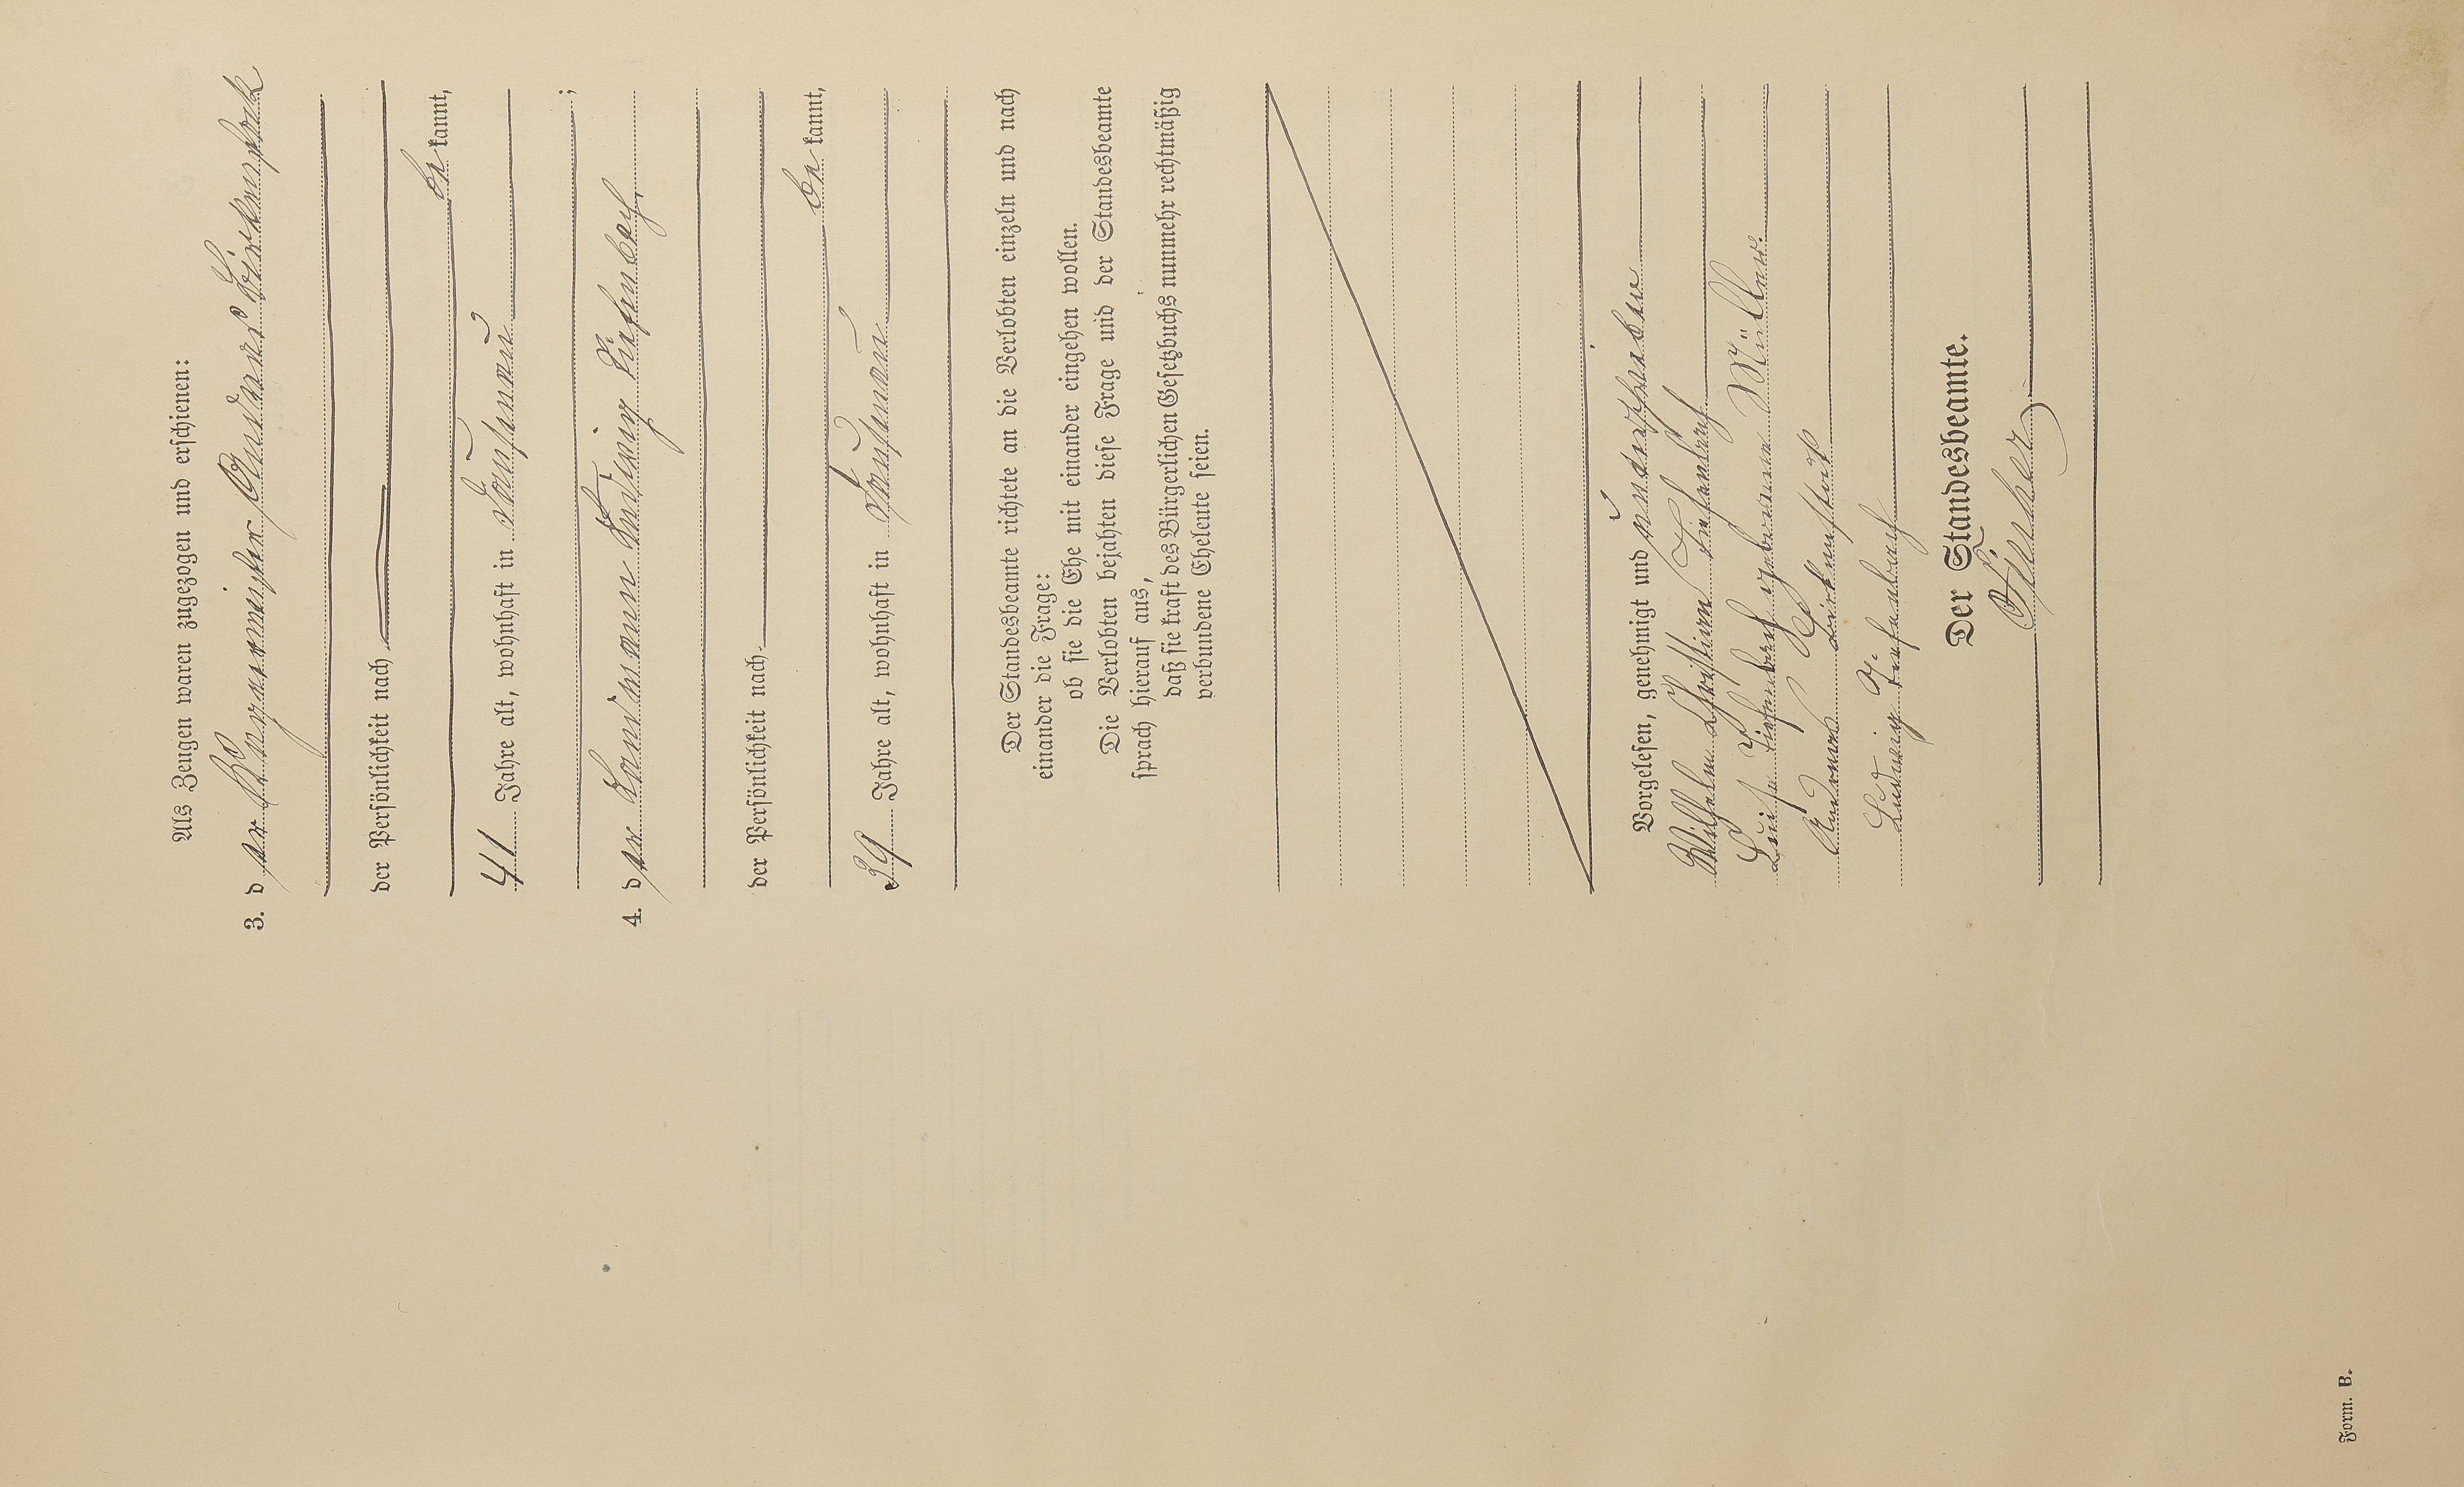 Als Zeugen waren zugezogen und erschienen:
3. der Andreas
der Persönlichkeit nach
be kannt,
41 Jahre alt, wohnhaft in Dausenau
;
4. der Landmann Ludwig Diefenbach
der Persönlichkeit nach
be kannt,
39 Jahre alt, wohnhaft in Dausenau
Der Standesbeamte richtete an die Verlobten einzeln und nach
einander die Frage:
ob sie die Ehe mit einander eingehen wollen.
Die Verlobten bejahten diese Frage und der Standesbeamte
sprach hierauf aus,
daß sie kraft des Bürgerlichen Gesetzbuchs nunmehr rechtmäßig
verbundene Eheleute seien.
Vorgelesen, genehmigt und unterschrieben
Wilhelm Christian Diefenbach
Luise Diefenbach geborene Müller.
Andreas
Ludwig Diefenbach
Der Standesbeamte.
Form. B.